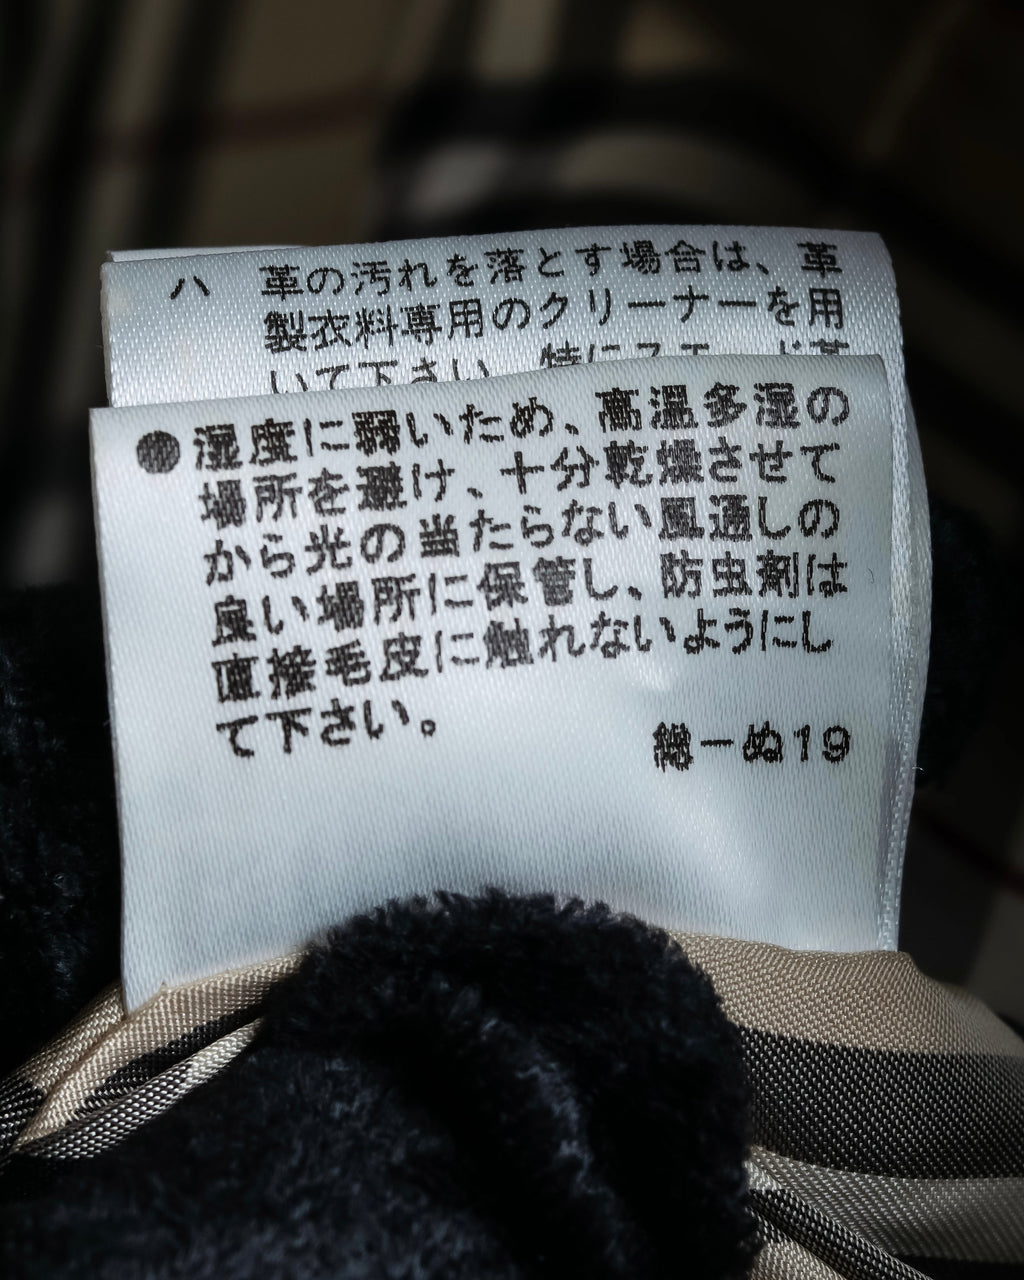 ハ 革の汚れを落とす場合は、革
製衣料専用のクリーナーを用
いて下さい。特にスエード革
●湿度に弱いため、高温多湿の
場所を避け、十分乾燥させて
から光の当たらない風通しの
良い場所に保管し、防虫剤は
直接毛皮に触れないようにし
て下さい。
総ーぬ19